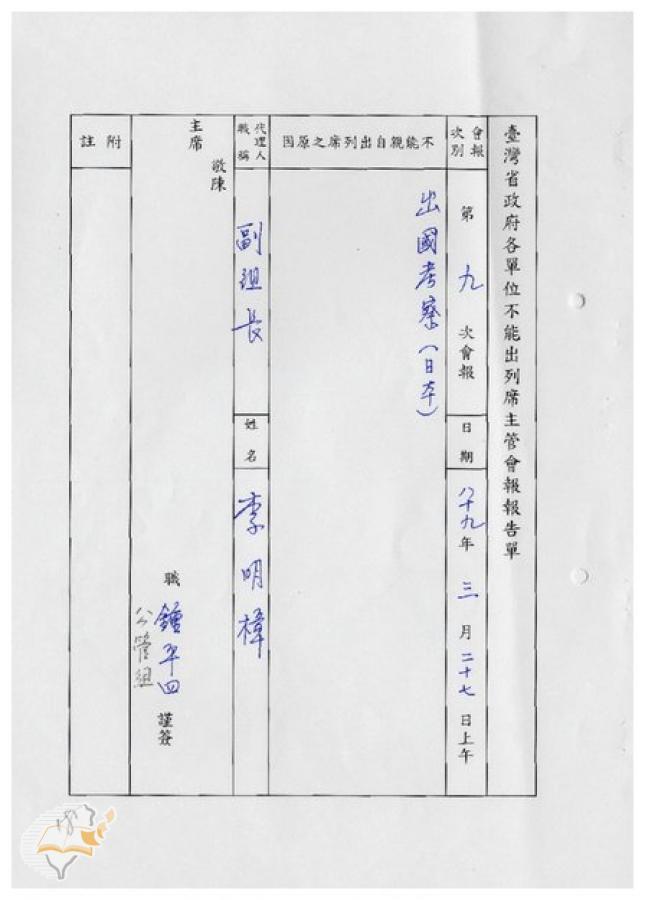 臺灣省政府各單位不能出列席主管會報報告單
會報次別
第九次會報
日期
八十九年三月二十七日上午
不能親自出列席之原因
出國考察(日本)
代理人職稱
副組長
姓名
李明樟
敬陳
主席
職鍾平四謹簽
公管組
附註